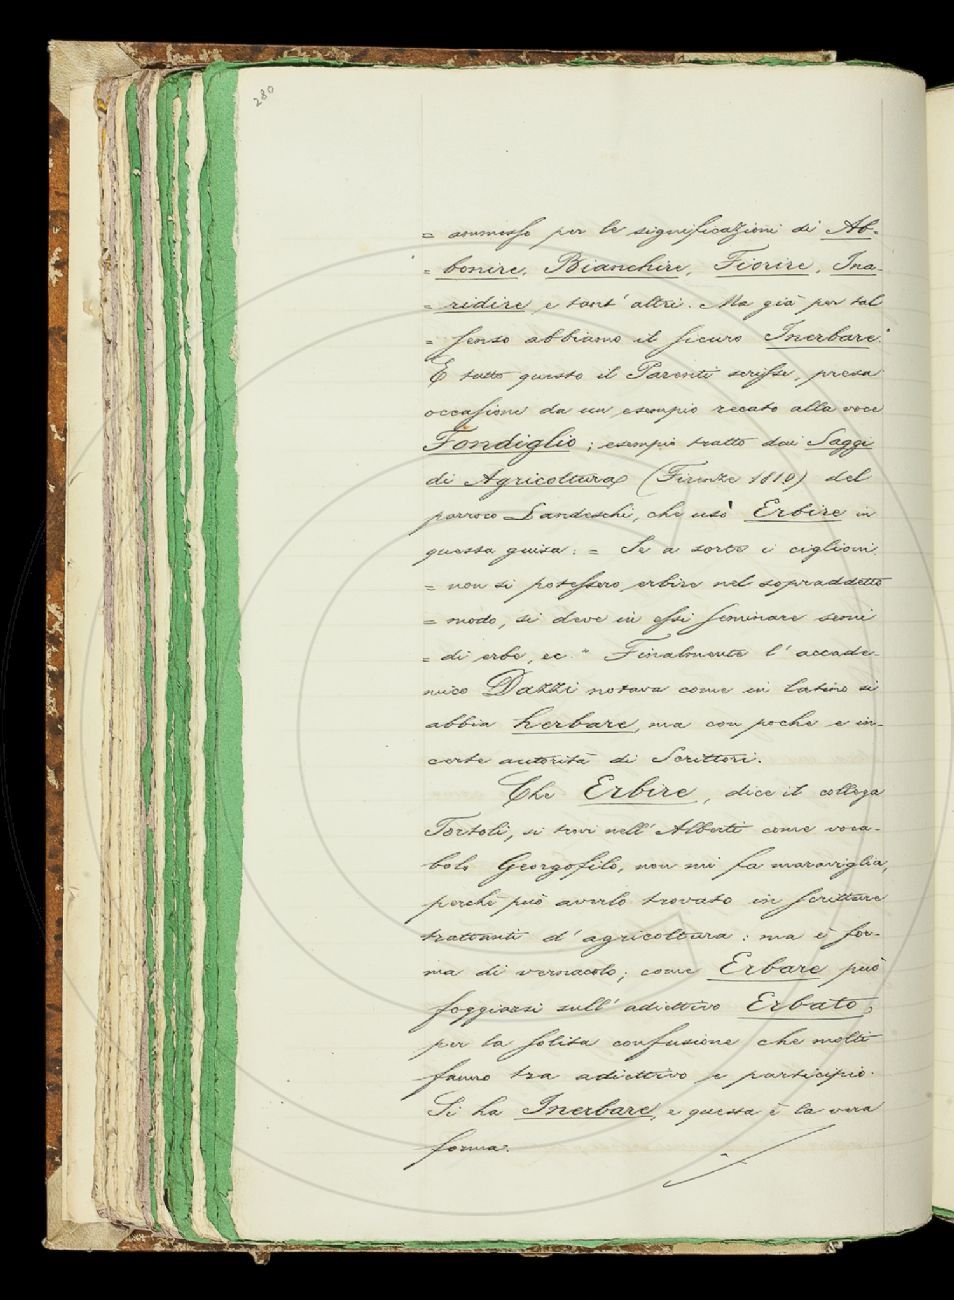 280
= ammesso per le significazioni di Ab-
= bonire, Bianchire, Fiorire, Ina-
= ridire e tant' altri. Ma già per tal
= senso abbiamo il sicuro Inerbare."
E tutto questo il Parenti scrisse, presa
occasione da un esempio recato alla voce
Fondiglio; esempio tratto dai Saggi
di Agricoltura (Firenze 1810) del
parroco Landeschi, che usò Erbire in
questa guisa: = Se a sorte i ciglioni
= non si potessero erbire nel sopraddetto
= modo, si deve in essi seminare semi
= di erbe, ec." Finalmente l'accade-
mico Dazzi notava come in latino si
abbia herbare, ma con poche e in-
certe autorità di Scrittori.
Che Erbire, dice il collega
Tortoli, si trovi nell'Alberti come voca-
bolo Georgofilo, non mi fa maraviglia,
perchè può averlo trovato in scritture
trattanti d'agricoltura: ma è for-
ma di vernacolo; come Erbare può
foggiarsi sull'adiettivo Erbato,
per la solita confusione che molti
fanno tra adiettivo e participio.
Si ha Inerbare, e questa è la vera
forma.